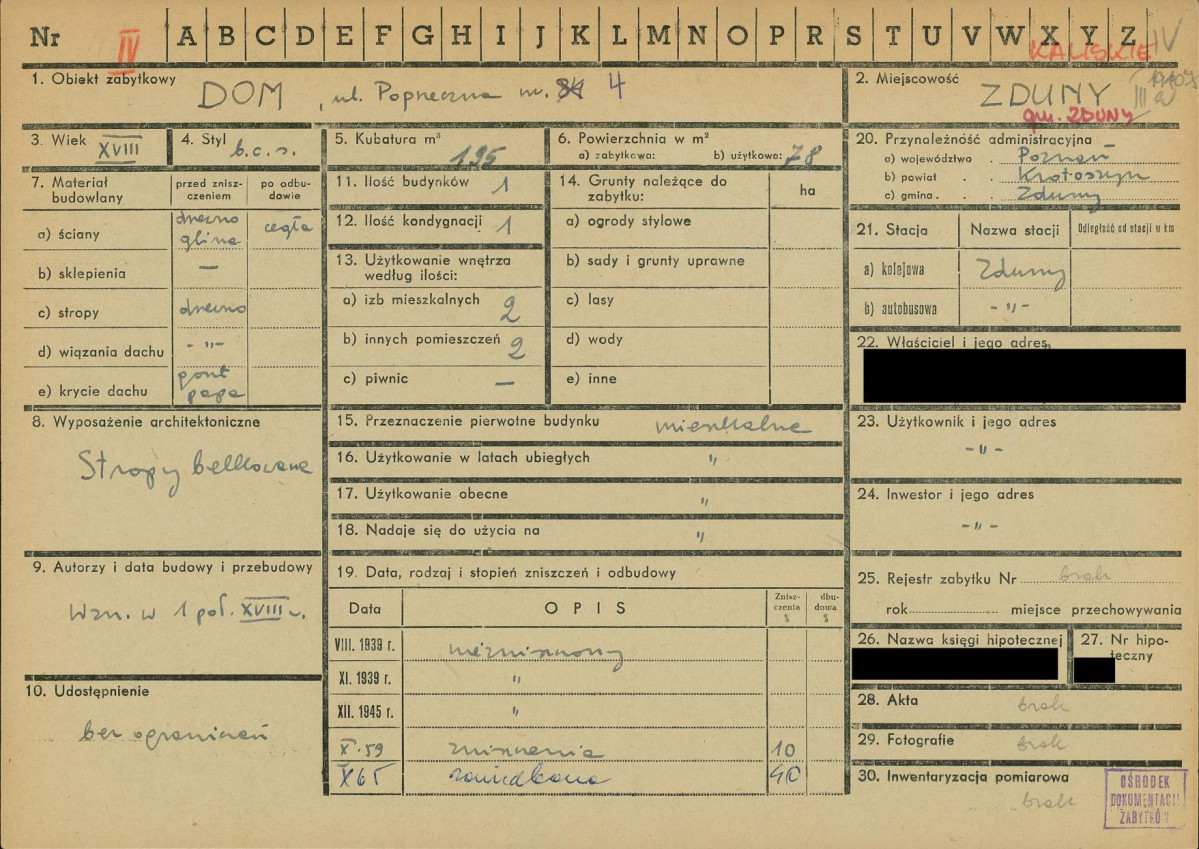 Nr IV A B C D E F G H I J K L M N O P R S T U V W X Y Z IV
KALISKIE
1. Obiekt zabytkowy DOM, ul. Poprzeczna nr. 4
2. Miejscowość ZDUNY
gm. ZDUNY
3. Wiek XVIII
4. Styl b.c.s.
5. Kubatura m³ 195
6. Powierzchnia w m²
a) zabytkowa: b) użytkowa: 78
7. Materiał budowlany
przed znisz-
czeniem
po odbu-
dowie
a) ściany drewno glina cegła
b) sklepienia —
c) stropy drewno
d) wiązania dachu - „ -
e) krycie dachu gont papa
8. Wyposażenie architektoniczne
Stropy belkowane
9. Autorzy i data budowy i przebudowy
Wzn. w 1 poł. XVIII w.
10. Udostępnienie
bez ograniczeń
11. Ilość budynków 1
12. Ilość kondygnacji 1
13. Użytkowanie wnętrza
według ilości:
a) izb mieszkalnych 2
b) innych pomieszczeń 2
c) piwnic —
14. Grunty należące do
zabytku:
ha
a) ogrody stylowe
b) sady i grunty uprawne
c) lasy
d) wody
e) inne
15. Przeznaczenie pierwotne budynku mieszkalne
16. Użytkowanie w latach ubiegłych „
17. Użytkowanie obecne „
18. Nadaje się do użycia na „
19. Data, rodzaj i stopień zniszczeń i odbudowy
Data OPIS Znisz-
czenia
%
dbu-
dowa
%
VIII. 1939 r. niezniszczony
XI. 1939 r. „
XII. 1945 r. „
X. 59 zniszczenia 10
X 65 zaniedbana 40
20. Przynależność administracyjna
a) województwo . Poznań
b) powiat . . Krotoszyn
c) gmina . . . Zduny
21. Stacja Nazwa stacji Odległość od stacji w km
a) kolejowa Zduny
b) autobusowa - „ -
22. Właściciel i jego adres
23. Użytkownik i jego adres
- „ -
24. Inwestor i jego adres
- „ -
25. Rejestr zabytku Nr brak
rok miejsce przechowywania
26. Nazwa księgi hipotecznej
27. Nr hipo-
teczny
28. Akta brak
29. Fotografie brak
30. Inwentaryzacja pomiarowa
brak
OŚRODEK
DOKUMENTACJI
ZABYTKÓW